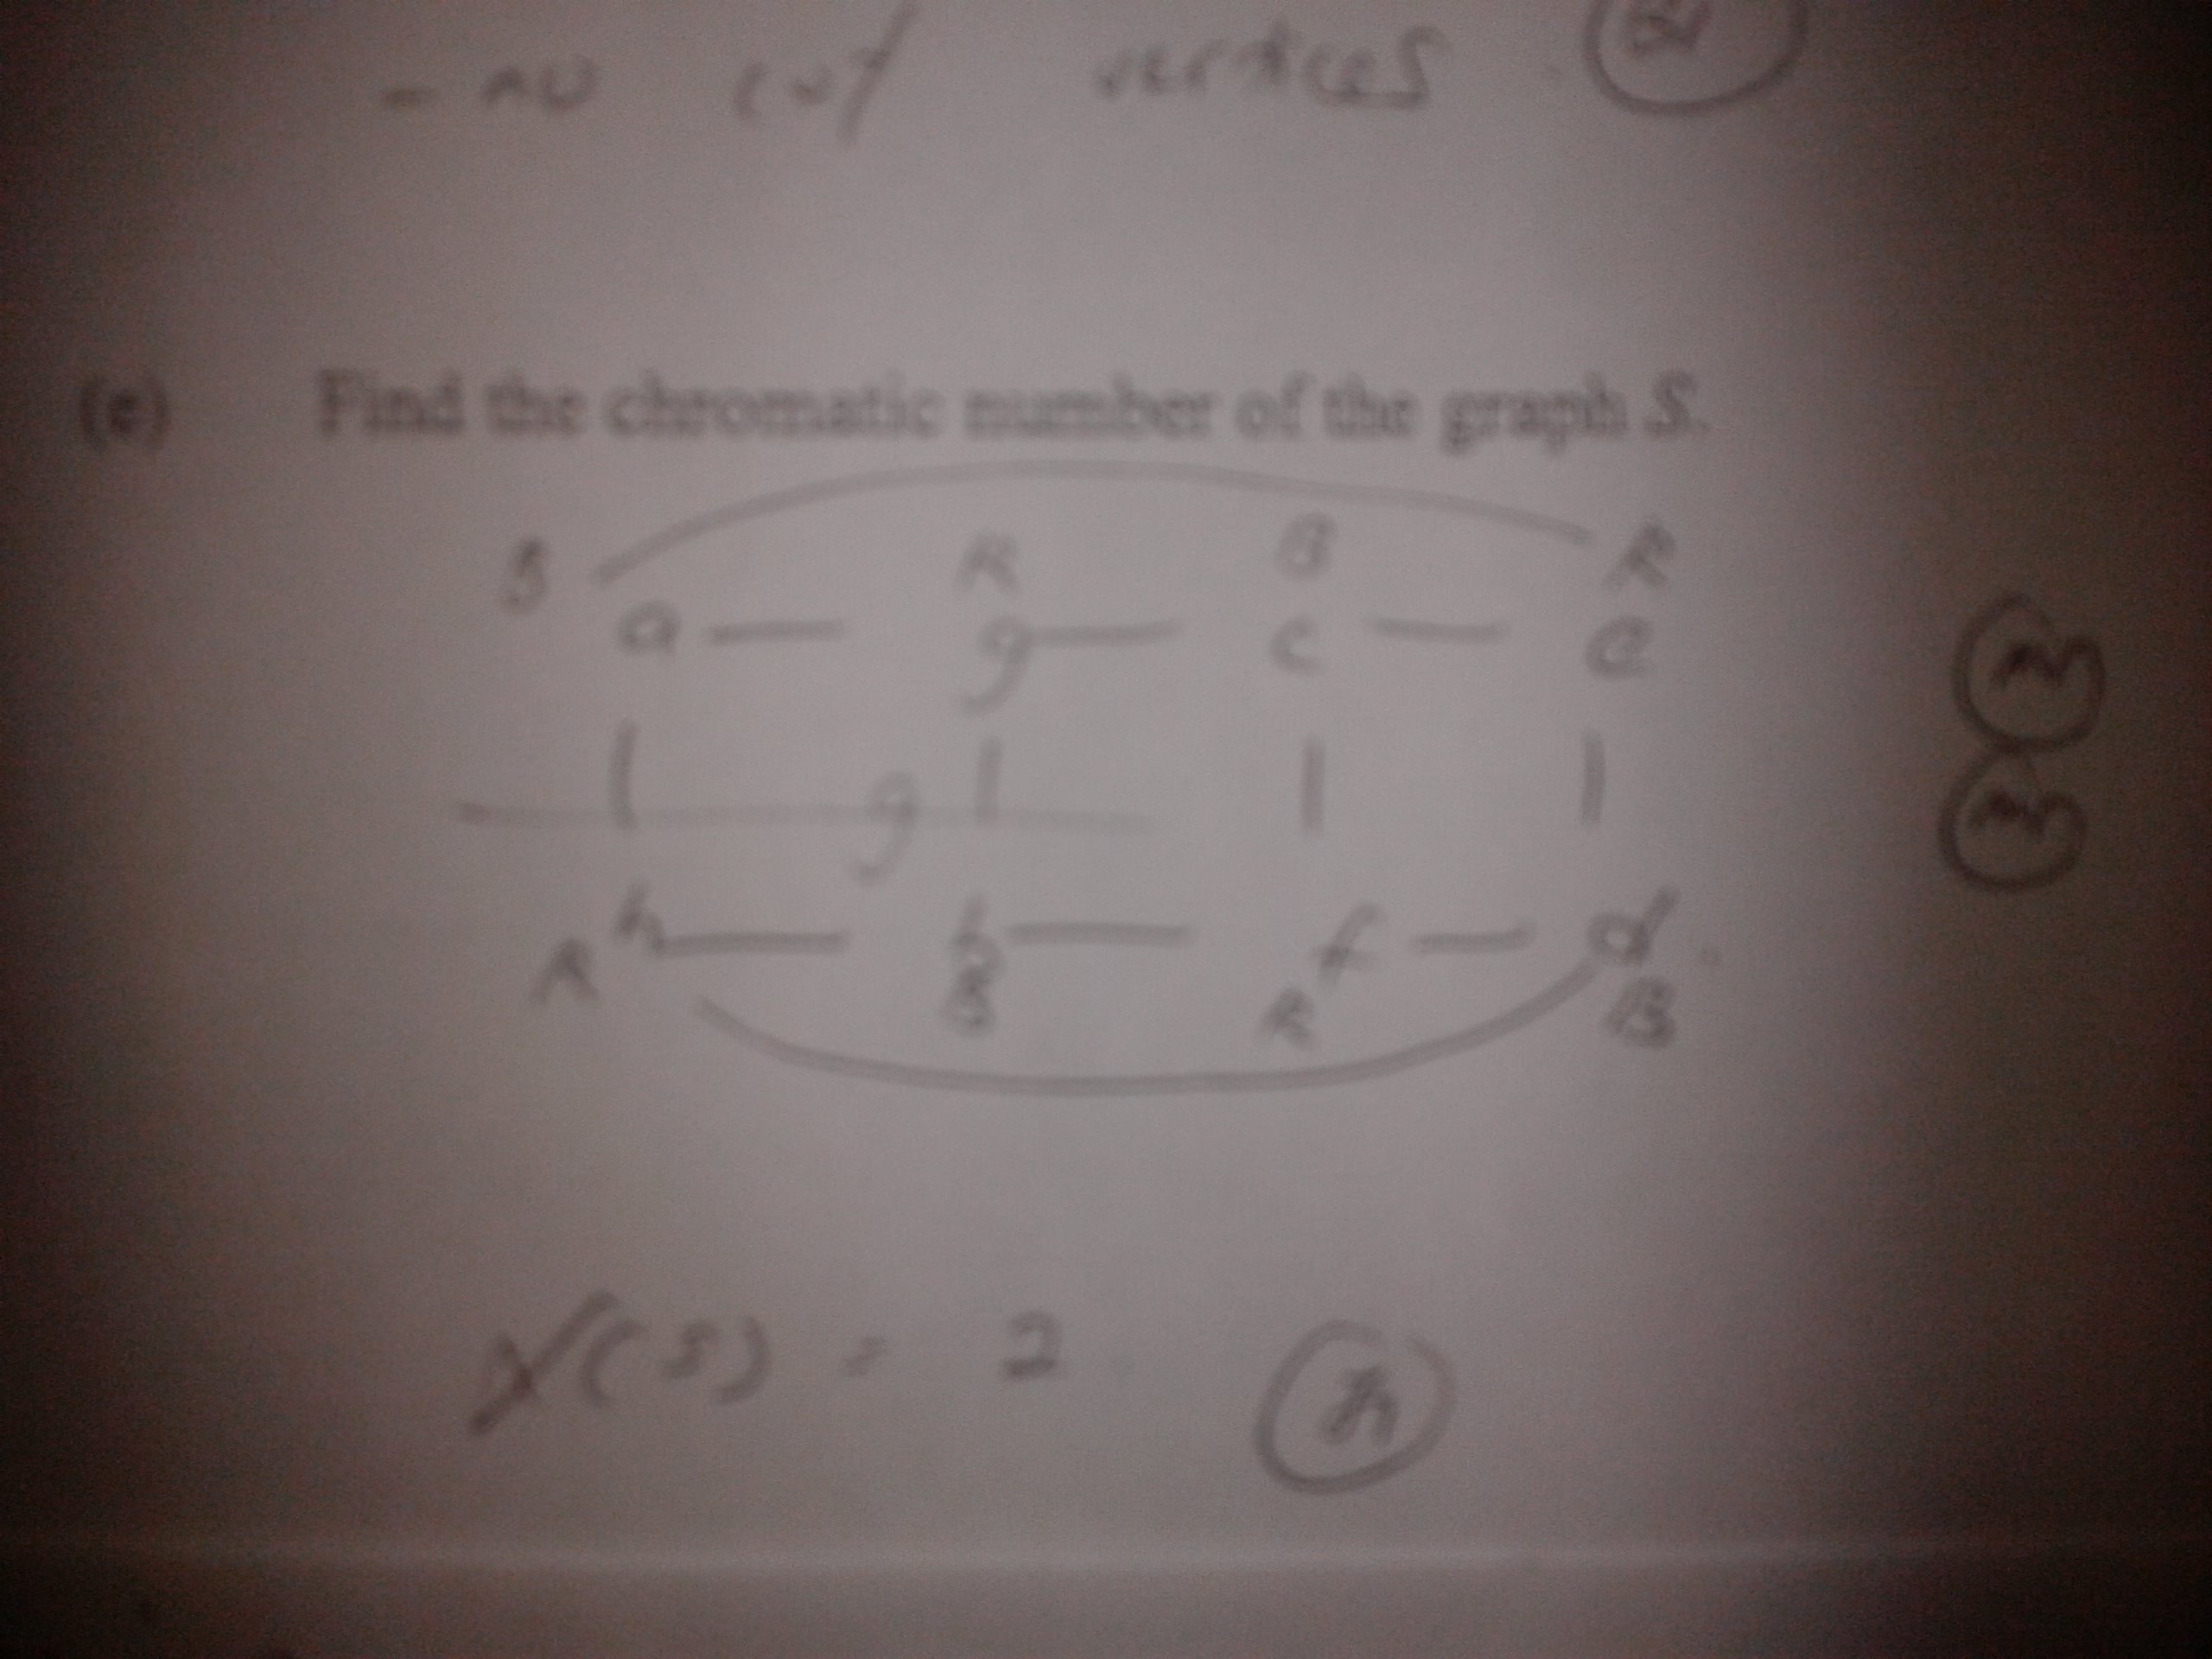 - no cut vertices
(e) Find the chromatic number of the graph S.
B R B R
a — g — c — e
g
h — b — f — d
R B R B
χ(S) = 2